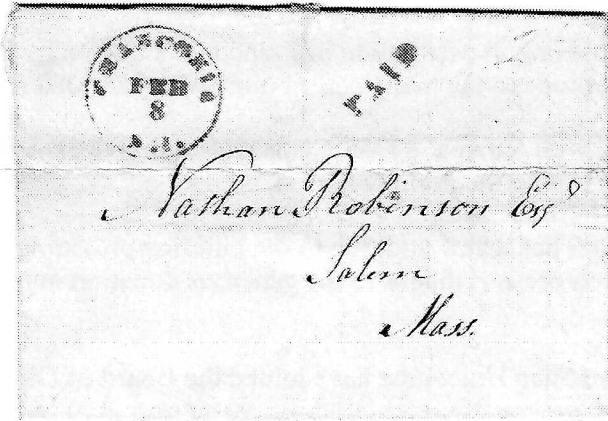 FRANCONIA
FEB
8
N.H.
PAID
Nathan Robinson Esq
Salem
Mass.